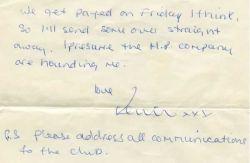 We get payed on Friday I think,
so I'll send some over straight
away. I presure the H.P company
are hounding me.
love
xxx
P.S Please address all communications
to the club.